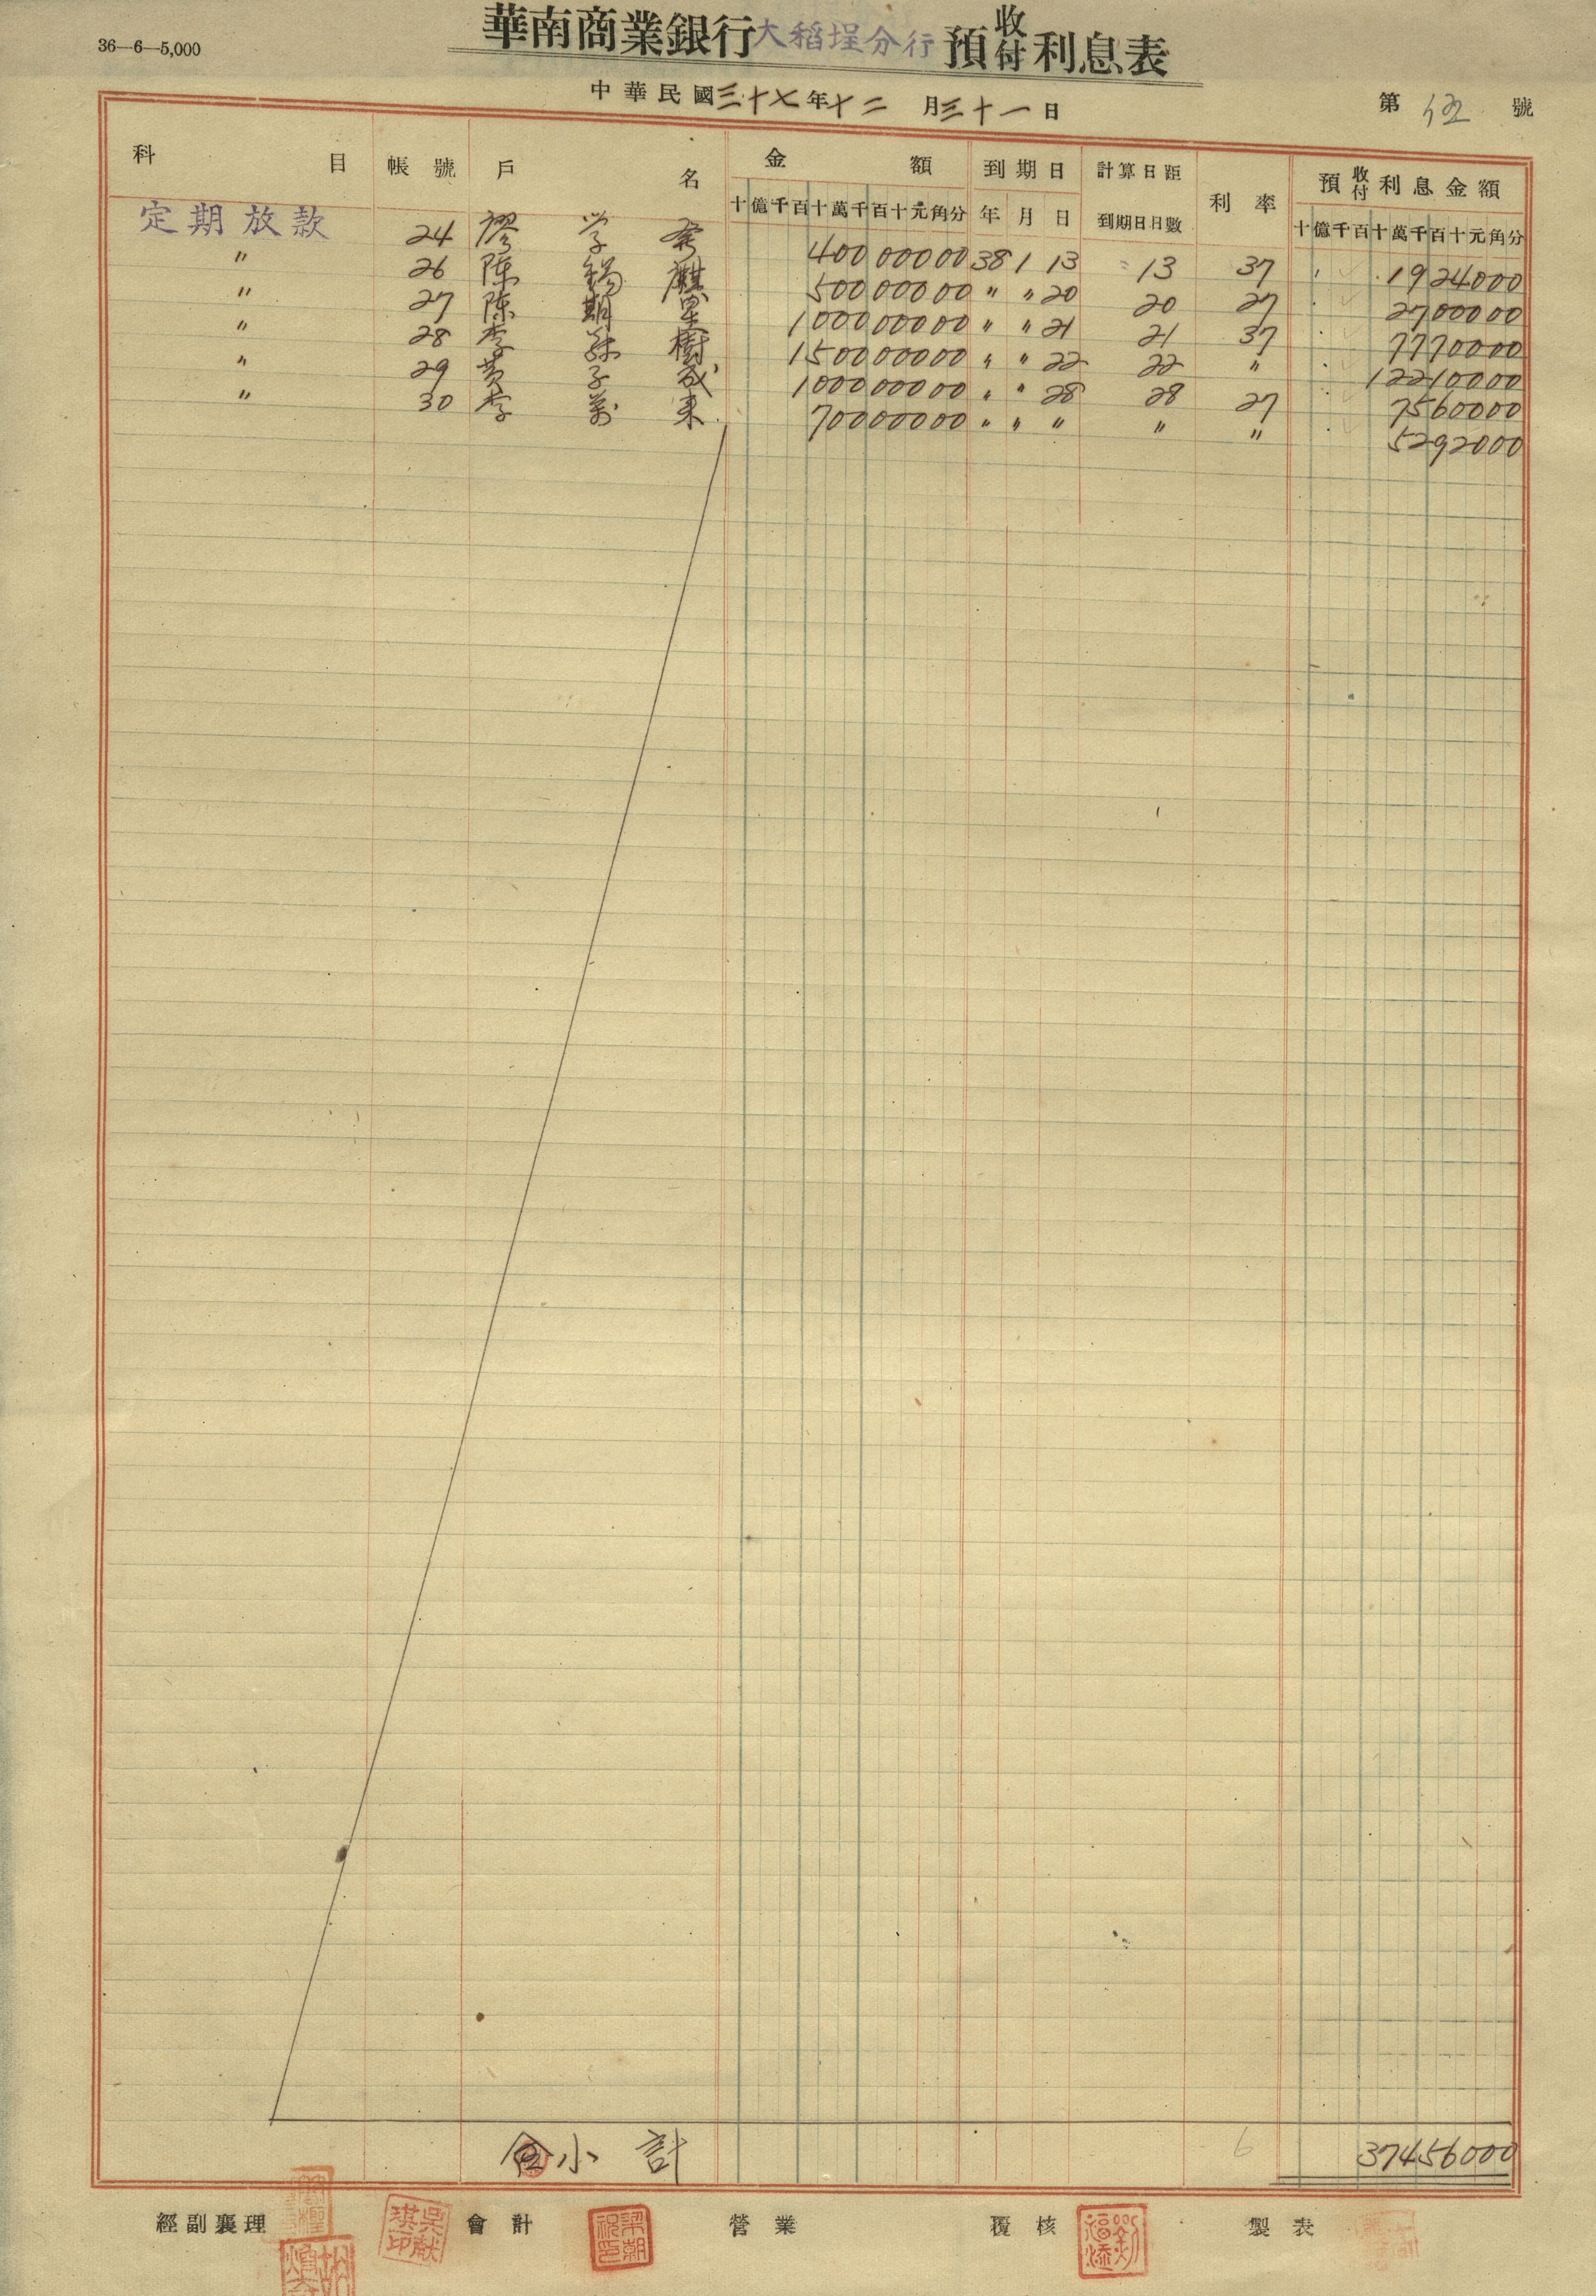 36—6—5,000
華南商業銀行大稻埕分行預收付利息表
中華民國三十七年十二月三十一日 第 伍 號
科目 帳號 戶名 金額 到期日 計算日距到期日日數 利率 預收付利息金額
十億千百十萬千百十元角分 年月日 十億千百十萬千百十元角分
定期放款 24 廖学 40000000 38 1 13 13 37 1924000
〃 26 陈錫麒 50000000 〃 〃 20 20 27 2700000
〃 27 陈期星 100000000 〃 〃 21 21 37 7770000
〃 28 李 樹 150000000 〃 〃 22 22 〃 12210000
〃 29 黄子成 100000000 〃 〃 28 28 27 7560000
〃 30 李萬来 70000000 〃 〃 〃 〃 〃 5292000
小計 6 37456000
經副襄理 會計 營業 覆核 製表
吳献琪印
梁朝祝印
劉福添